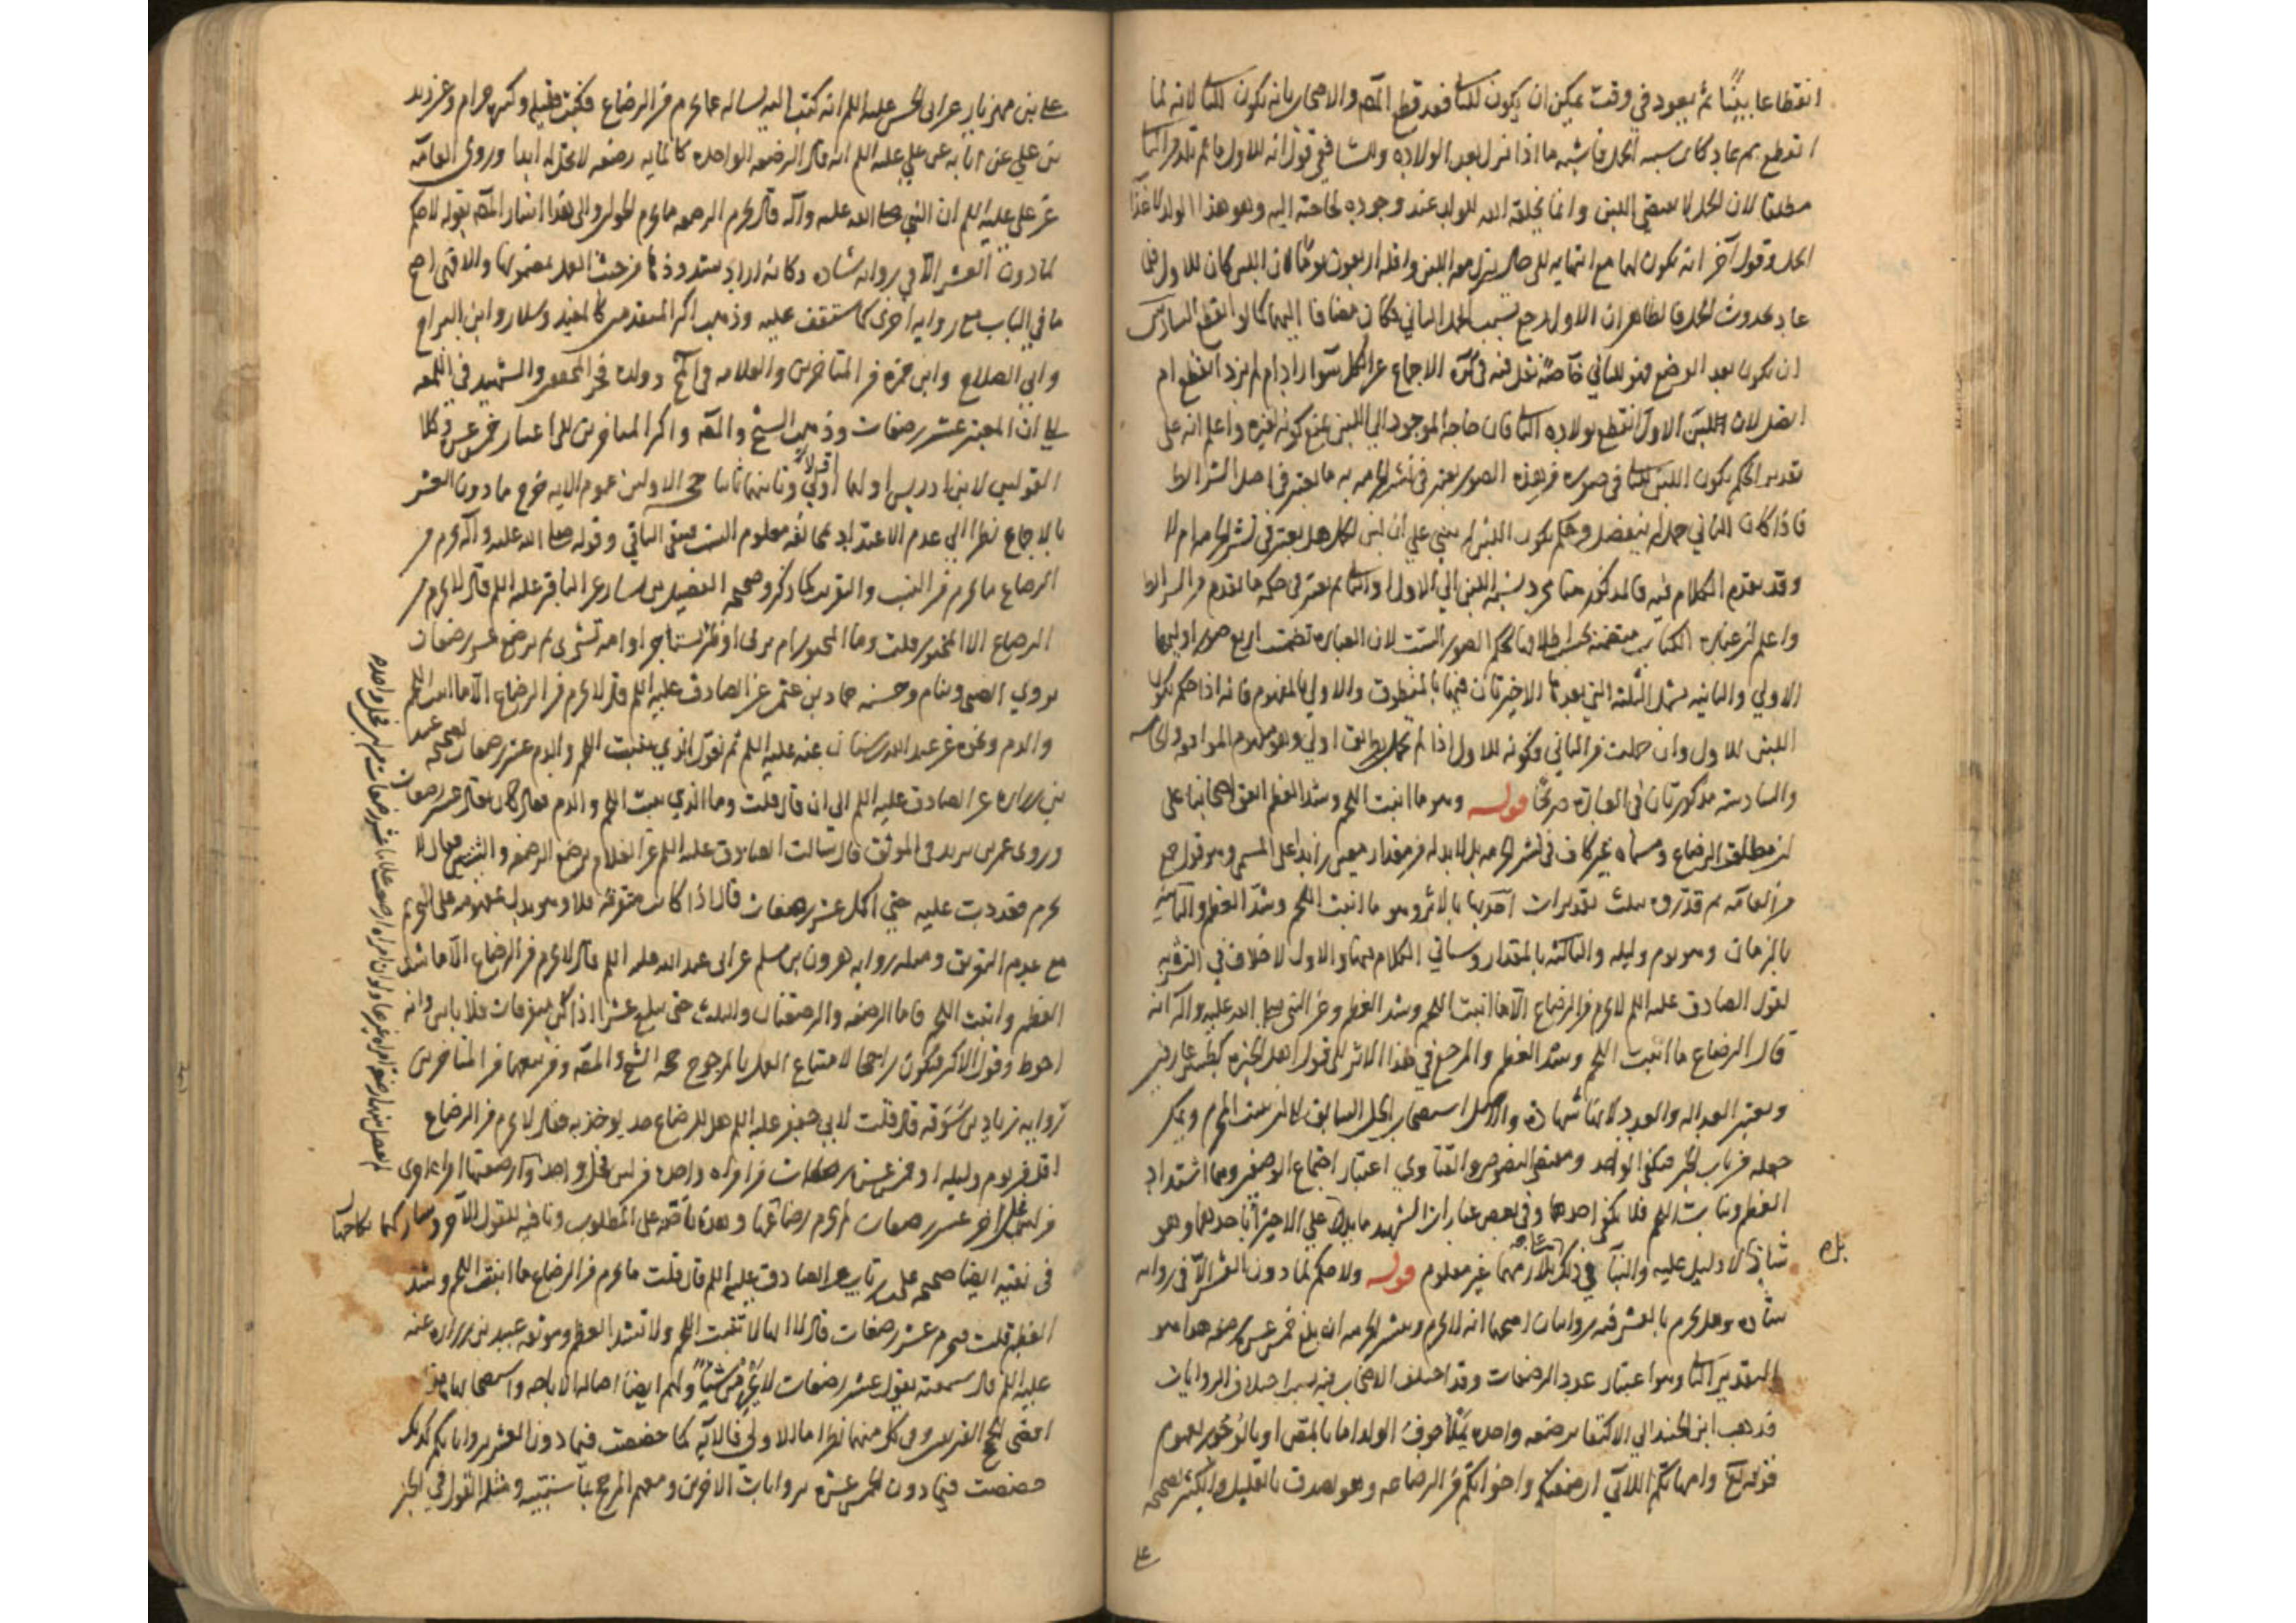 انقطاعا بينا ثم يعود في وقت يمكن ان يكون للثاني فقد قطع المصنف والاصحاب بانه يكون للثاني لانه لما
انقطع ثم عاد كان سببه الحمل فاشبه ما اذا نزل بعد الولادة وللشافعي قول انه للاول ما لم تلد من الثاني
مطلقا لان الحمل لا يقتضي اللبن وانما يخلقه الله للولد عند وجوده لحاجته اليه وهو هذا الولد لا غذاء
الحمل وقول آخر انه يكون لهما مع انتهائه الى حال ينزل معه اللبن واقله اربعون يوما لان اللبن كان للاول فلما
عاد بحدوث الحمل فالظاهر ان الاول رجع بسبب الحمل الثاني فكان مضافا اليهما كما لو لم ينقطع السادس
ان يكون بعد الوضع فهو للثاني خاصة نقل فيه في كره الاجماع عن الكل سواء زاد ام لم يزد انقطع ام
اتصل لان اللبن الاول انقطع بولادة الثاني فان حاجة الموجود الى اللبن تمنع كونه لغيره واعلم انه على
تقدير الحكم بكون اللبن للثاني في صورة من هذه الصور يعتبر في نشر الحرمة به ما يعتبر في اصل الشرائط
فاذا كان الثاني حمل لم ينفصل وحكم بكون اللبن له يبنى على ان لبن الحمل هل يعتبر في نشر الحرمة ام لا
وقد تقدم الكلام فيه فالمذكور هنا مجرد نسبة اللبن الى الاول او الثاني ثم يعتبر في حكمه ما تقدم من الشرائط
واعلم ان عبارة الكتاب متضمنة لحكم الصور الست لان العبارة تضمنت اربع صور اوليها
الاولى والثانية تشمل الثلثة التي بعدها الاخيرتان منها بالمنطوق والاولى بالمفهوم فانه اذا حكم بكون
اللبن للاول وان حملت من الثاني فكونه للاول اذا لم تحمل بطريق اولى وهو مفهوم الموافقة والخامسة
والسادسة مذكورتان في العبارة صريحا قوله وهو ما انبت اللحم وشد العظم اتفق اصحابنا على
ان مطلق الرضاع ومسماه غير كاف في نشر الحرمة بل لا بد له من مقدار معين زايد على المسمى وهو قول جمع
من العامة ثم قدروه بثلث تقديرات احدها بالاثر وهو ما انبت اللحم وشد العظم والثانية
بالزمان وهو يوم وليلة والثالثة بالمقدار وسياتي الكلام فيهما والاول لا خلاف في النشر به
لقول الصادق عليه السلم لا يحرم من الرضاع الا ما انبت اللحم وشد العظم وعن النبي صلى الله عليه وآله انه
قال الرضاع ما انبت اللحم وشد العظم والمرجع في هذا الاثر الى قول اهل الخبرة كطبيبين عارفين
ويعتبر العدالة والعدد لانها شهادة والاصل استصحاب الحل السابق الى ان يثبت المحرم ويمكن
جعله من باب الخبر فيكفي الواحد ومقتضى النصوص والفتاوي اعتبار اجتماع الوصفين وهما اشتداد
العظم ونبات اللحم فلا يكفي احدهما وفي بعض عبارات الشهيد ما يدل على الاجتزاء باحدهما وهو
شاذ لا دليل عليه والبناء في ذلك على تلازمهما غير معلوم قوله ولا حكم لما دون العشر الا في رواية
شاذة وهل يحرم بالعشر فيه روايتان اصحهما انه لا يحرم وينشر الحرمة ان بلغ خمس عشرة رضعة هذا هو
التقدير الثاني وهو اعتبار عدد الرضعات وقد اختلف الاصحاب فيه بسبب اختلاف الروايات
فذهب ابن الجنيد الى الاكتفاء برضعة واحدة تملأ جوف الولد اما بالمص او بالوجور لعموم
قوله تعالى وامهاتكم اللاتي ارضعنكم واخواتكم من الرضاعة وهو يصدق بالقليل والكثير لصحيحة
على
علي بن مهزيار عن ابي الحسن عليه السلم انه كتب اليه يساله عما يحرم من الرضاع فكتب قليله وكثيره حرام وعن زيد
بن علي عن آبائه عن علي عليه السلم انه قال الرضعة الواحدة كالماية رضعة لا تحل له ابدا وروى العامة
عن علي عليه السلم ان النبي صلى الله عليه وآله قال يحرم الرضعة ما يحرم الحولان والى هذا اشار المصنف بقوله لا حكم
لما دون العشر الا في رواية شاذة وكانه اراد بشذوذها من حيث العمل بمضمونها والا فهي اصح
ما في الباب مع رواية اخرى كما ستقف عليه وذهب اكثر المتقدمين كالمفيد وسلار وابن البراج
وابي الصلاح وابن حمزة من المتاخرين والعلامة في المخ وولده فخر المحققين والشهيد في اللمعة
الى ان المعتبر عشر رضعات وذهب الشيخ والمصنف واكثر المتاخرين الى اعتبار خمس عشر وكلا
القولين لابن ادريس اولهما اولا وثانيهما ثانيا حجة الاولين عموم الآية خرج ما دون العشر
بالاجماع نظرا الى عدم الاعتداد بمخالفة معلوم النسب فيبقى الباقي وقوله صلى الله عليه وآله يحرم من
الرضاع ما يحرم من النسب والتقريب كما ذكر وصحيحة الفضيل بن يسار عن الباقر عليه السلم قال لا يحرم من
الرضاع الا المخبور قلت وما المخبور قال ام تربي او ظئر تستاجر او امة تشترى ثم ترضع عشر رضعات
يروي الصبي وينام وحسنة حماد بن عثمن عن الصادق عليه السلم قال لا يحرم من الرضاع الا ما انبت اللحم
والدم وغيره عن عبد الله بن سنان عنه عليه السلم ثم نقول الذي ينبت اللحم والدم عشر رضعات لصحيحة عبيد
بن زرارة عن الصادق عليه السلم الى ان قال قلت وما الذي ينبت اللحم والدم فقال كان يقال عشر رضعات
وروى عمر بن يزيد في الموثق قال سالت الصادق عليه السلم عن الغلام يرضع الرضعة والثنتين فقال لا
يحرم فعددت عليه حتى اكملت عشر رضعات فقال اذا كانت متفرقة فلا وهو يدل بمفهومه على التحريم
مع عدم التفريق ومثله رواية هرون بن مسلم عن ابي عبد الله عليه السلم قال لا يحرم من الرضاع الا ما شد
العظم وانبت اللحم فاما الرضعة والرضعتان والثلث حتى بلغ عشرا اذا كن متفرقات فلا باس وانه
احوط وقول الاكثر فيكون راجحا لامتناع العمل بالمرجوح حجة الشيخ والمصنف ومن تبعهما من المتاخرين
رواية زياد بن سوقة قال قلت لابي جعفر عليه السلم هل للرضاع حد يوخذ به فقال لا يحرم من الرضاع
اقل من يوم وليلة او خمس عشرة رضعات من امراة واحدة من لبن فحل واحد وارضعتها امراة اخرى
من لبن فحل آخر عشر رضعات لم يحرم رضاعهما وهذه ناصة على المطلوب ونافية للقول الآخر
في نفيه ايضا صحيحة علي بن رئاب عن الصادق عليه السلم قال قلت ما يحرم من الرضاع قال ما انبت اللحم وشد
العظم قلت فيحرم عشر رضعات قال لا لانها لا تنبت اللحم ولا تشد العظم وموثقة عبيد بن زرارة عنه
عليه السلم قال سمعته يقول عشر رضعات لا يحرمن شيئا ولهم ايضا اصالة الاباحة واستصحابها
اقصى حجج الفريقين وفي كل منهما نظر اما الاولى فالآية كما خصصت فيما دون العشر بروايتكم كذلك
خصصت فيما دون الخمس عشرة بروايات الآخرين ومعهم المرجح بما سنبينه ومثله القول في الخبر